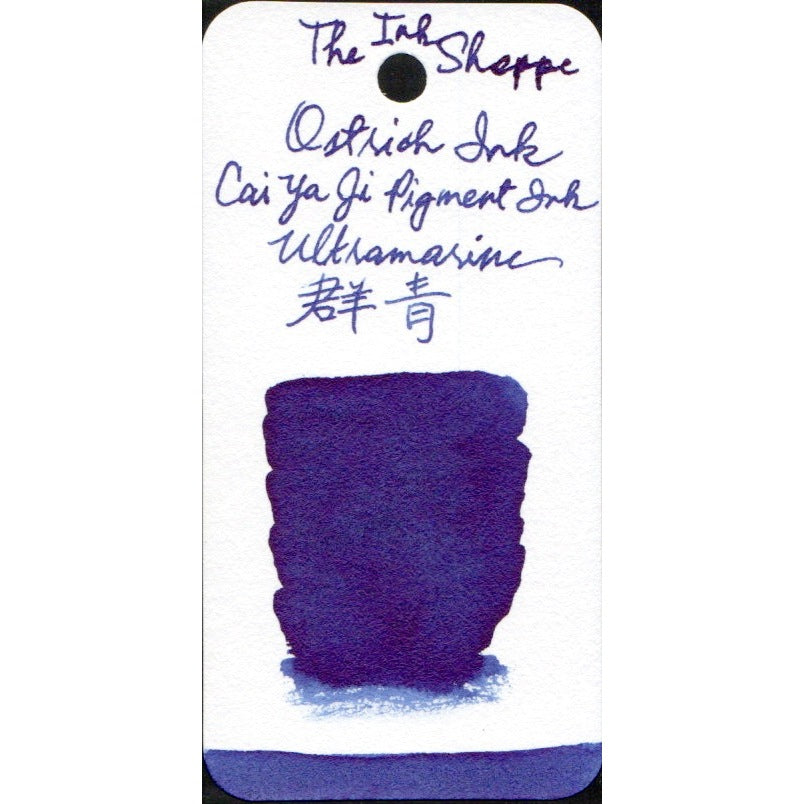 The Ink Shoppe
Ostrich Ink
Cai Ya Ji Pigment Ink
Ultramarine
群青